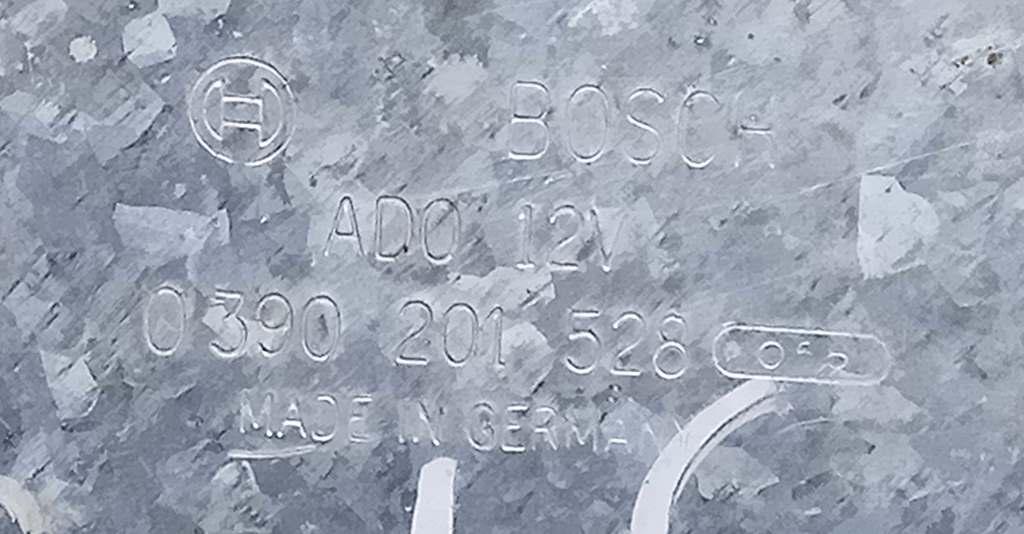 BOSCH
ADO 12V
0 390 201 528
MADE IN GERMANY